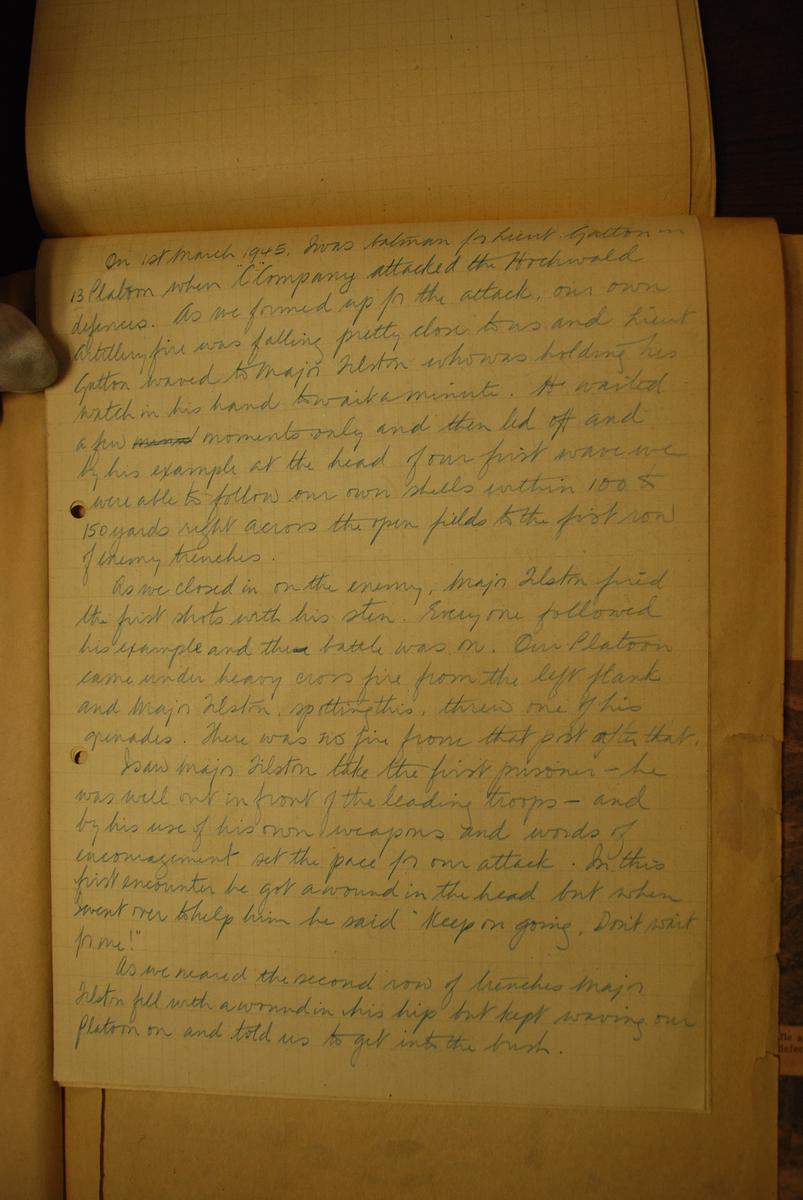 On 1st March 1945, I was batman for Lieut. Gatton in
13 Platoon when "C" Company attacked the Hochwald
defences. As we formed up for the attack, our own
Artillery fire was falling pretty close to us and Lieut
Gatton waved to Major Tilston who was holding his
watch in his hand to wait a minute. He waited
a few moments only and then led off and
by his example at the head of our first wave we
were able to follow our own shells within 100 to
150 yards right across the open fields to the first row
of enemy trenches.
As we closed in on the enemy, Major Tilston fired
the first shots with his sten. Everyone followed
his example and the battle was on. Our Platoon
came under heavy cross fire from the left flank
and Major Tilston, spotting this, threw one of his
grenades. There was no fire from that post after that.
I saw Major Tilston take the first prisoner – he
was well out in front of the leading troops – and
by his use of his own weapons and words of
encouragement set the pace for our attack. In this
first encounter he got a wound in the head but when
I went over to help him he said "Keep on going, Don't wait
for me!"
As we neared the second row of trenches Major
Tilston fell with a wound in his hip but kept waving our
Platoon on and told us to get into the bush.